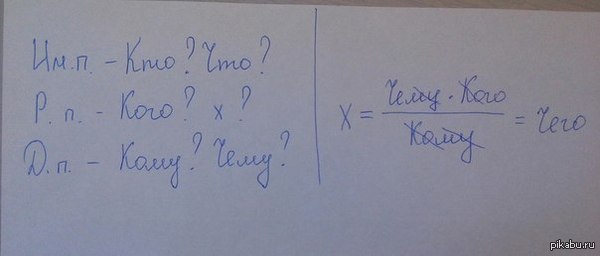 Им.п. - Кто? Что?
Р. п. - Кого? х ?
Д.п. - Кому? Чему?
X = Чему · Кого / Кому = Чего
pikabu.ru